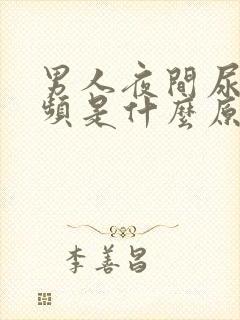 男人夜間尿
頻是什麼原
李善昌